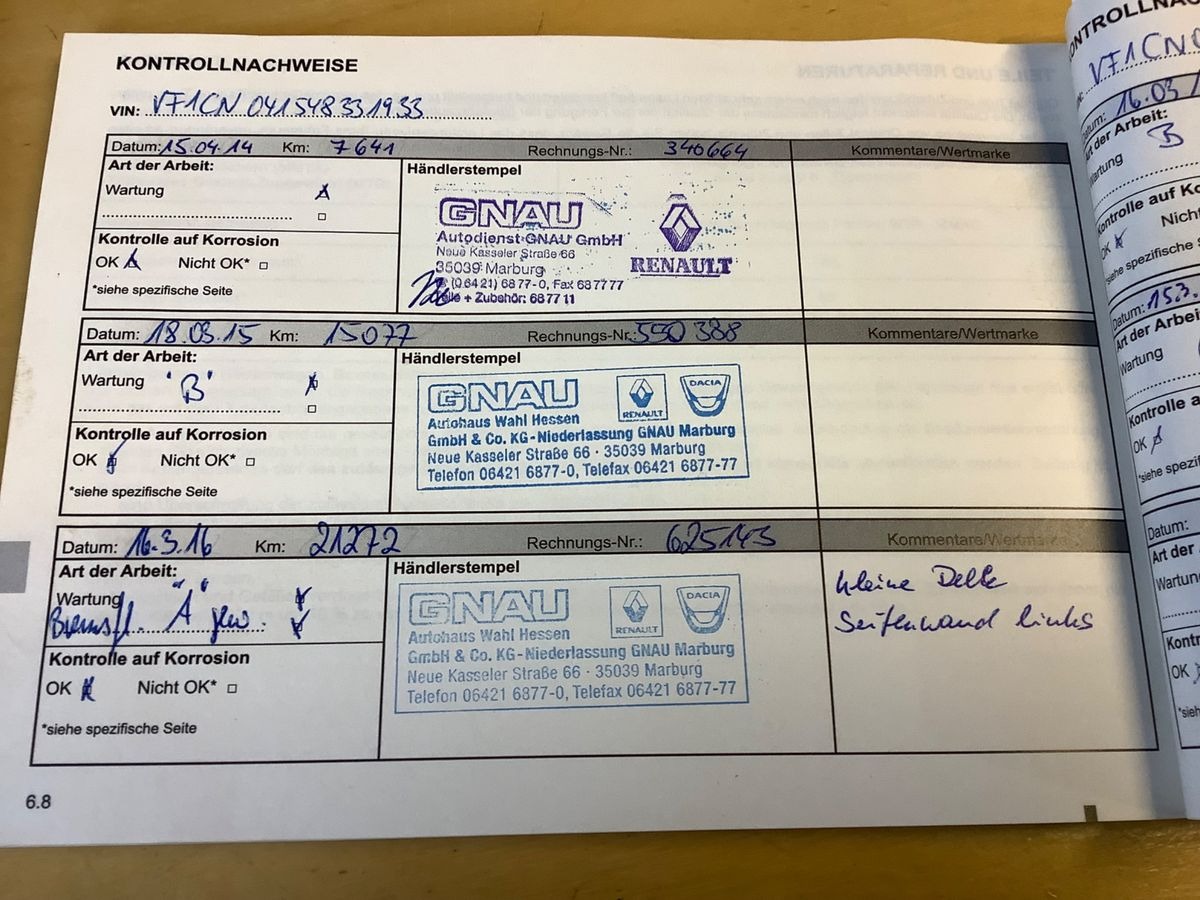 KONTROLLNACHWEISE
VIN: VF1CN041548331933
Datum: 15.04.14 Km: 7641 Rechnungs-Nr.: 340664 Kommentare/Wertmarke
Art der Arbeit:
Wartung
Kontrolle auf Korrosion
OK Nicht OK*
*siehe spezifische Seite
Händlerstempel
GNAU
Autodienst GNAU GmbH
Neue Kasseler Straße 66
35039 Marburg
(06421) 6877-0, Fax 687777
Teile + Zubehör: 687711
RENAULT
Datum: 18.03.15 Km: 15077 Rechnungs-Nr.: 550388 Kommentare/Wertmarke
Art der Arbeit:
Wartung "B"
Kontrolle auf Korrosion
OK Nicht OK*
*siehe spezifische Seite
Händlerstempel
GNAU RENAULT DACIA
Autohaus Wahl Hessen
GmbH & Co. KG-Niederlassung GNAU Marburg
Neue Kasseler Straße 66 · 35039 Marburg
Telefon 06421 6877-0, Telefax 06421 6877-77
Datum: 16.3.16 Km: 21272 Rechnungs-Nr.: 625143 Kommentare/Wertmarke
Art der Arbeit:
Wartung "A"
Bremsfl. gew.
Kontrolle auf Korrosion
OK Nicht OK*
*siehe spezifische Seite
Händlerstempel
GNAU RENAULT DACIA
Autohaus Wahl Hessen
GmbH & Co. KG-Niederlassung GNAU Marburg
Neue Kasseler Straße 66 · 35039 Marburg
Telefon 06421 6877-0, Telefax 06421 6877-77
kleine Delle
Seitenwand links
6.8
VF1CN0
Datum: 16.03
Art der Arbeit:
Wartung B
Kontrolle auf
OK Nicht
*siehe spezifische
Datum: 15.3.
Art der Arbeit
Wartung
Kontrolle a
OK
*siehe spezifis
Datum:
Art der
Wartung
Kontr
OK
*sieh